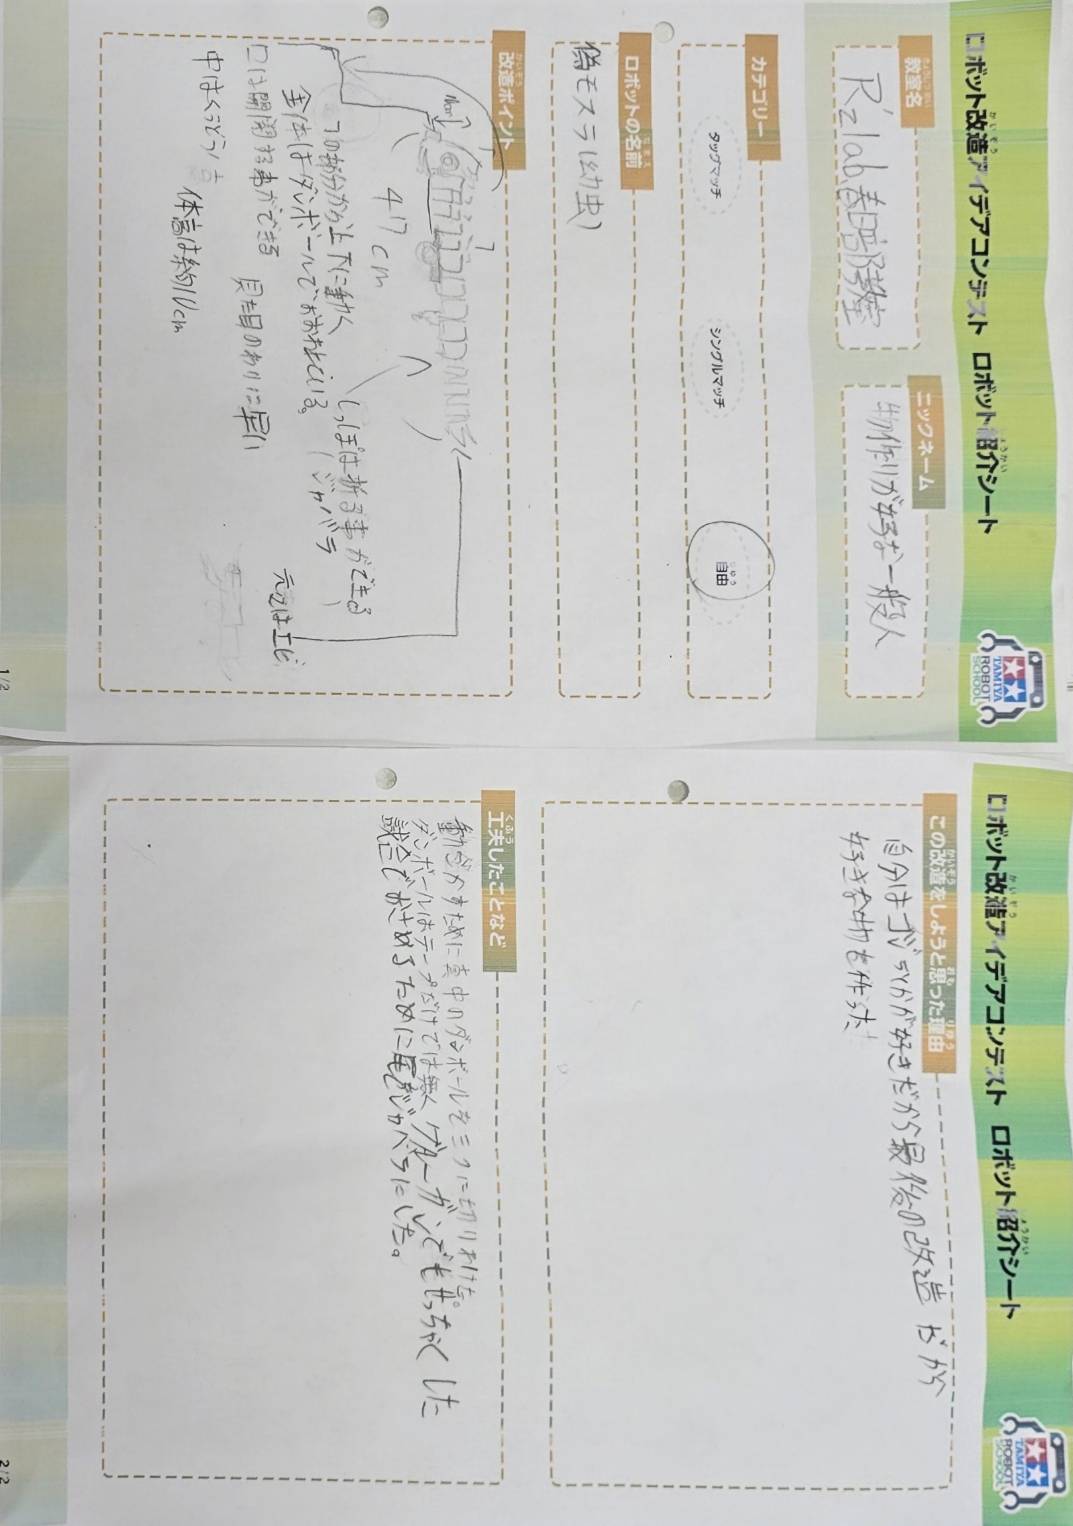 ロボット改造アイデアコンテスト ロボット紹介シート
教室名
R'zlab春日部教室
ニックネーム
物作りが好きな一般人
TAMIYA
ROBOT
SCHOOL
カテゴリー
タッグマッチ
シングルマッチ
自由
ロボットの名前
偽モスラ(幼虫)
改造ポイント
47cm
この部分から上下に動く
全体はダンボールでおおわれている。
口は開閉する事ができる
中はくうどう
体高は約16cm
見た目のわりに早い
しっぽは折る事ができる
(ジャバラ)
元ネタはエビ
1/2
ロボット改造アイデアコンテスト ロボット紹介シート
TAMIYA
ROBOT
SCHOOL
この改造をしようと思った理由
自分はゴジラとかが好きだから最後の改造だから
好きな物を作った!
工夫したことなど
動かすために真中のダンボールを三つに切りわけた。
ダンボールはテープだけでは無くグルーガンでもせっちゃくした
試合でおさめるために尾をじゃバラにした。
2/2